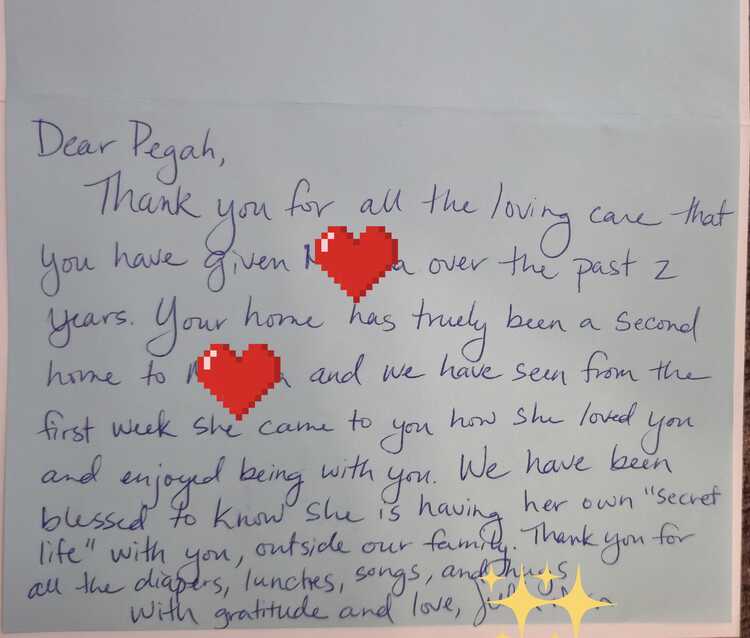 Dear Pegah,
Thank you for all the loving care that
you have given over the past 2
years. Your home has truely been a second
home to and we have seen from the
first week she came to you how she loved you
and enjoyed being with you. We have been
blessed to know she is having her own "secret
life" with you, outside our family. Thank you for
all the diapers, lunches, songs, and hugs
With gratitude and love,